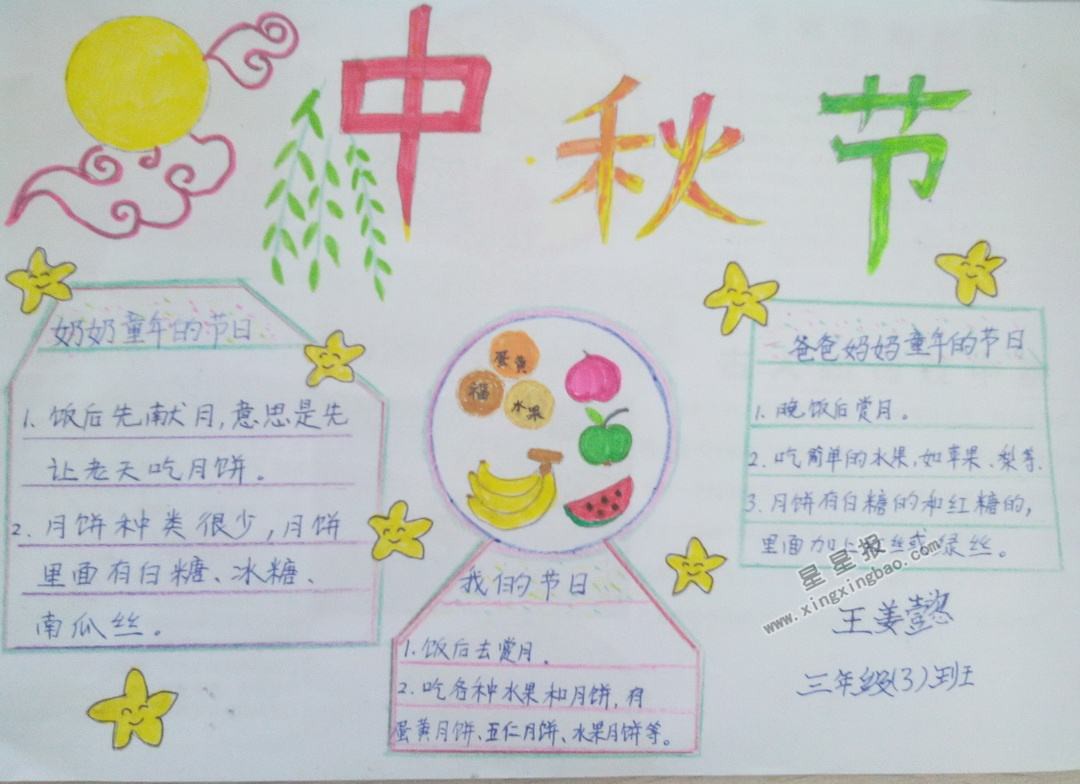 中秋节
奶奶童年的节日
1. 饭后先献月,意思是先
让老天吃月饼。
2. 月饼种类很少,月饼
里面有白糖、冰糖、
南瓜丝。
蛋黄
福
水果
我们的节日
1. 饭后去赏月。
2. 吃各种水果和月饼,有
蛋黄月饼、五仁月饼、水果月饼等。
爸爸妈妈童年的节日
1. 晚饭后赏月。
2. 吃简单的水果,如苹果、梨等.
3. 月饼有白糖的和红糖的,
里面加上 丝或绿丝。
星星报
www.xingxingbao.com
王姜懿
三年级(3)班